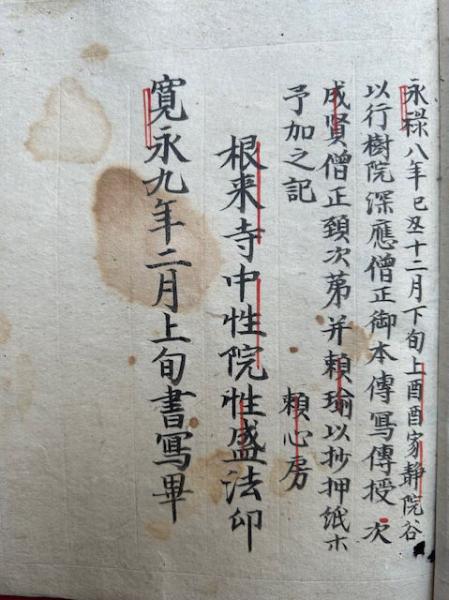 永禄八年己丑十二月下旬上酉酉家静院谷
以行樹院深應僧正御本傳寫傳授次
成賢僧正頚次苐并頼瑜以抄押紙ホ
予加之記 頼心房
根来寺中性院性盛法印
寛永九年二月上旬書寫畢